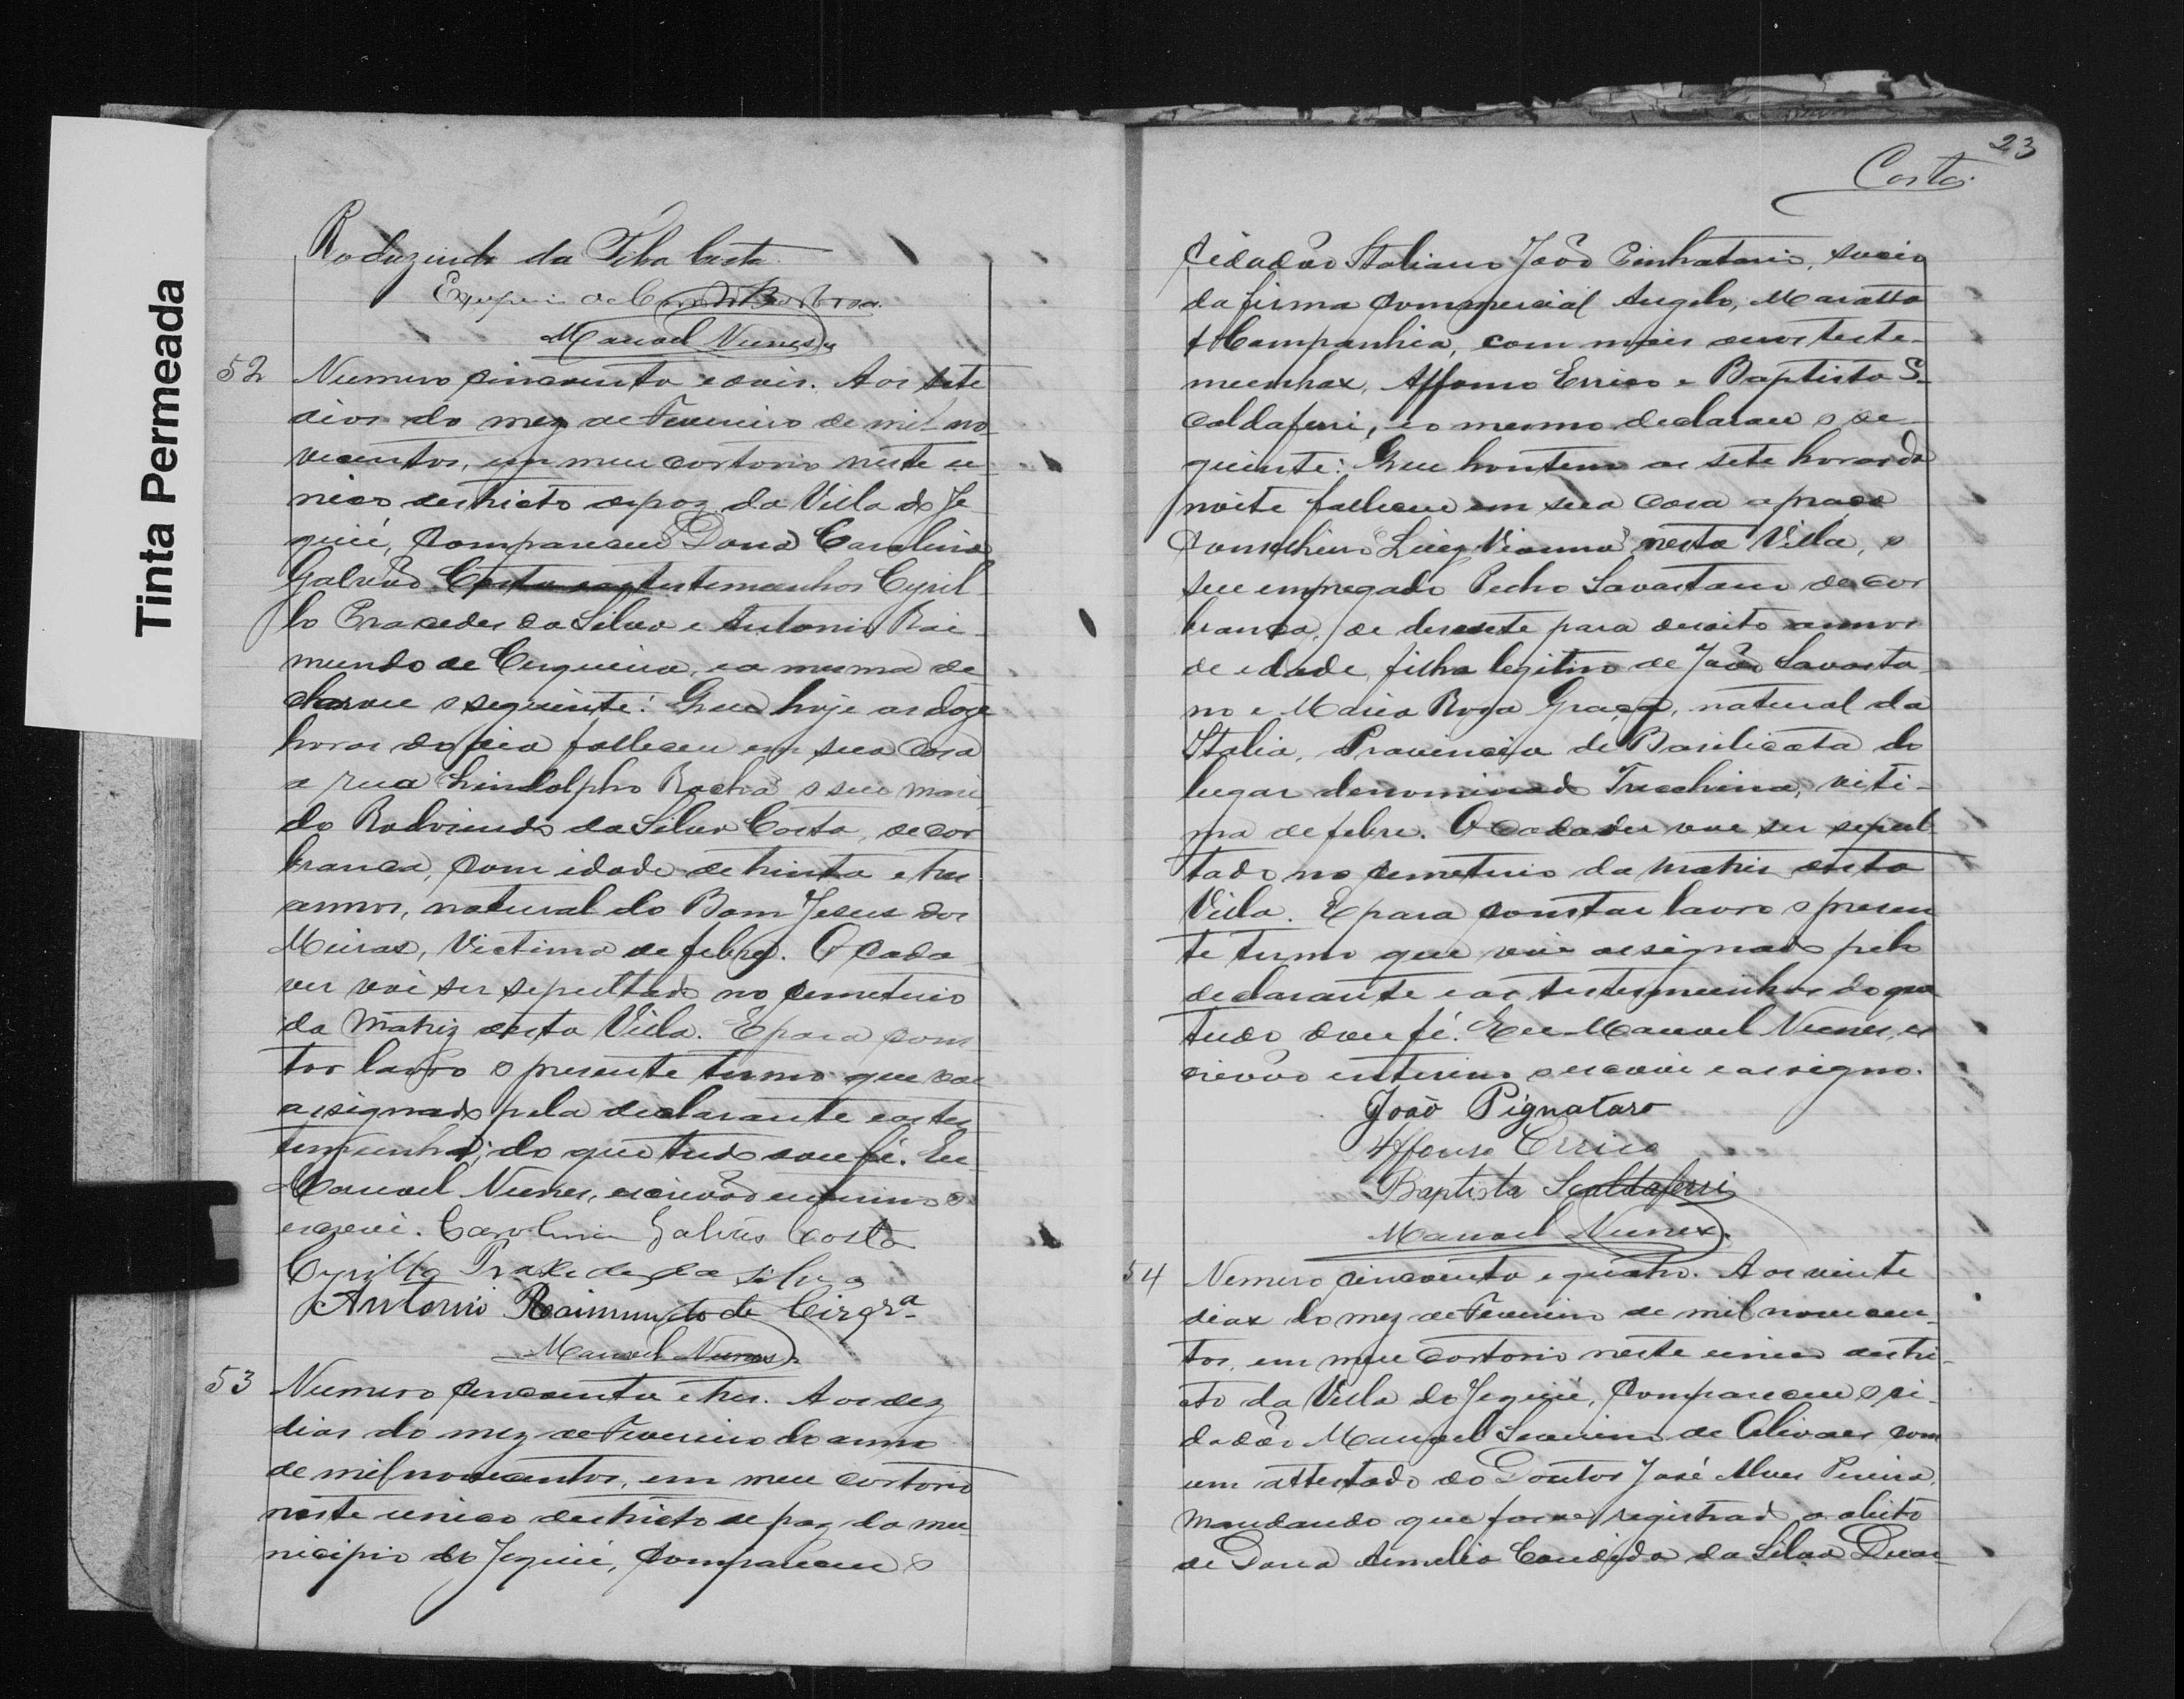 Tinta Permeada
da Silva Costa
Manoel Nunes
52 Numero cincoenta e dois. Aos sete
dias do mez de Fevereiro de mil no
vecentos, em meu cartorio neste u
nico destricto de paz da Villa de Je
quié, compareceu Dona Carolina
Galvão Costa e as testemunhas Cyril
lo Praxedes da Silva e Antonio Rai
mundo de Cerqueira, e a mesma de
clarou o seguinte: Que hoje as doze
horas do dia falleceu em sua casa
a rua "Lindolpho Rocha" o seu mari
do da Silva Costa, de cor
branca, com idade de trinta e tres
annos, natural do Bom Jesus dos
Meiras, victima de febre. O cada
ver vai ser sepultado no cemeterio
da Matriz desta Villa. E para cons
tar lavro o presente termo que vae
assignado pela declarante e as tes
temunhas; do que tudo dou fé. Eu
Manoel Nunes, escrivão enterino o
escrevi. Carolina Galvão Costa
Cyrillo Praxedes da Silva
Antonio Raimundo de Cirqra
Manoel Nunes
53 Numero cincoenta e tres. Aos dez
dias do mez de Fevereiro do anno
de mil novecentos, em meu cartorio
neste unico destricto de paz do mu
nicipio de Jequié, compareceu o
23
Costa
cidadão Italiano João Pinhatario, socio
da firma commercial Angelo, Marotta
& Companhia, com mais duas teste-
munhas, Affonso Errico e Baptista S-
caldaferri, e o mesmo declarou o se-
guinte: Que hontem as sete horas da
noite falleceu em sua casa a praça
Conselheiro "Luiz Vianna" nesta Villa, o
seu empregado Pedro Lavastano de cor
branca, de desesete para desoito annos
de edade, filho legitimo de João Lavasta
no e Maria Roza Graça, natural da
Italia, Provincia de Basilicata do
lugar denominado Trecchina, viti-
ma de febre. O cadaver vae ser sepul
tado no cemeterio da Matriz desta
Villa. E para constar lavro o presen
te termo que vai assignado pelo
declarante e as testemunhas do que
tudo dou fé. Eu Manoel Nunes, es
crivão enterino o escrevi e assigno.
João Pignataro
Affonso Errico
Baptista Scaldaferri
Manoel Nunes.
54 Numero cincoenta e quatro. Aos vinte
dias do mez de Fevereiro de mil novecen-
tos, em meu cartorio neste unico destri-
cto da Villa de Jequié, compareceu o ci-
dadão Manoel Severino de Olivaes com
um attestado do Doutor José Alves Pereira,
mandando que fosse registrado o obito
de Dona Amelia Candida da Silva Duar-